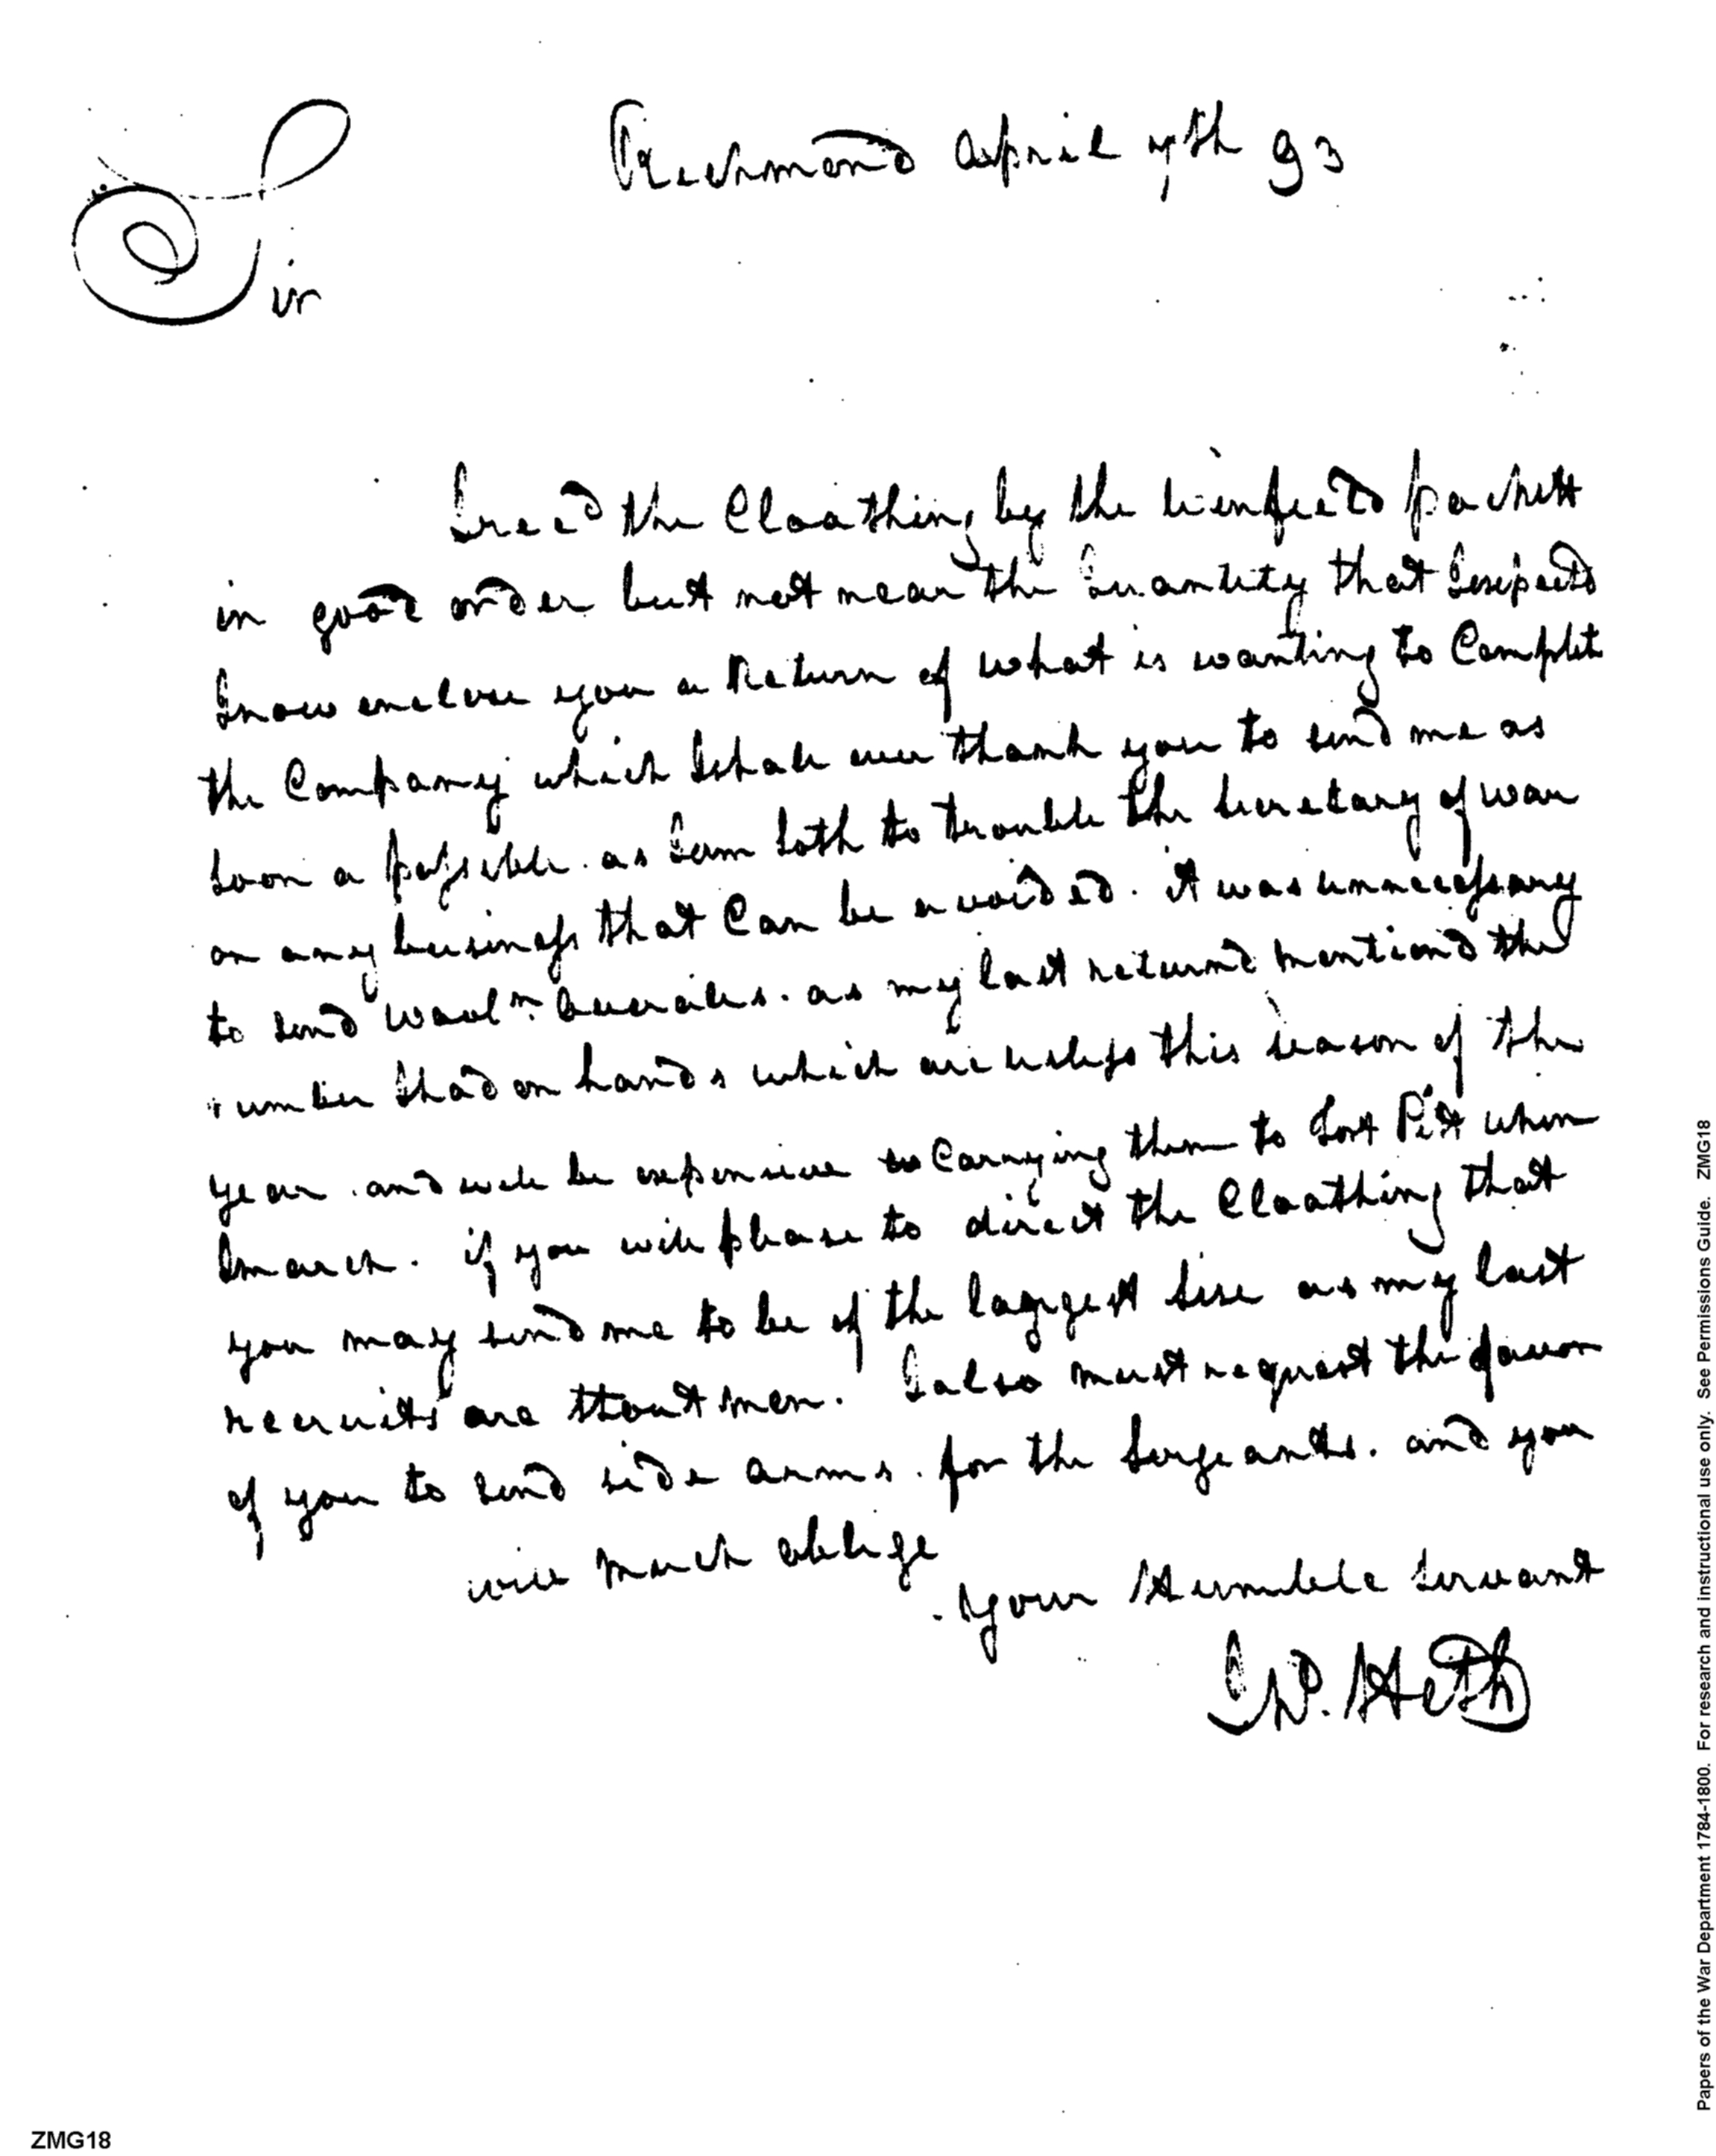 Richmond April 7th 93
Sir
I recd the Cloathing by the packett
in good order but not near the Quantity that I expected
I now enclose you a Return of what is wanting to Complet
the Company which I shall ever thank you to send me as
soon a possible. as I am loth to trouble the Secretary of war
on any business that Can be avoided. it was unnecessary
to send Wooln Overalls. as my last returnd mentiond the
number I had on hands which are useless this season of the
year. and will be expensive Carrying them to Fort Pitt when
I march. if you will please to direct the Cloathing that
you may send me to be of the largest sise as my last
recruits are stout men. I also must request the favor
of you to send side arms. for the Sergeants. and you
will much oblige
your Humble Servant
Jno. Heth
ZMG18
Papers of the War Department 1784-1800. For research and instructional use only. See Permissions Guide. ZMG18